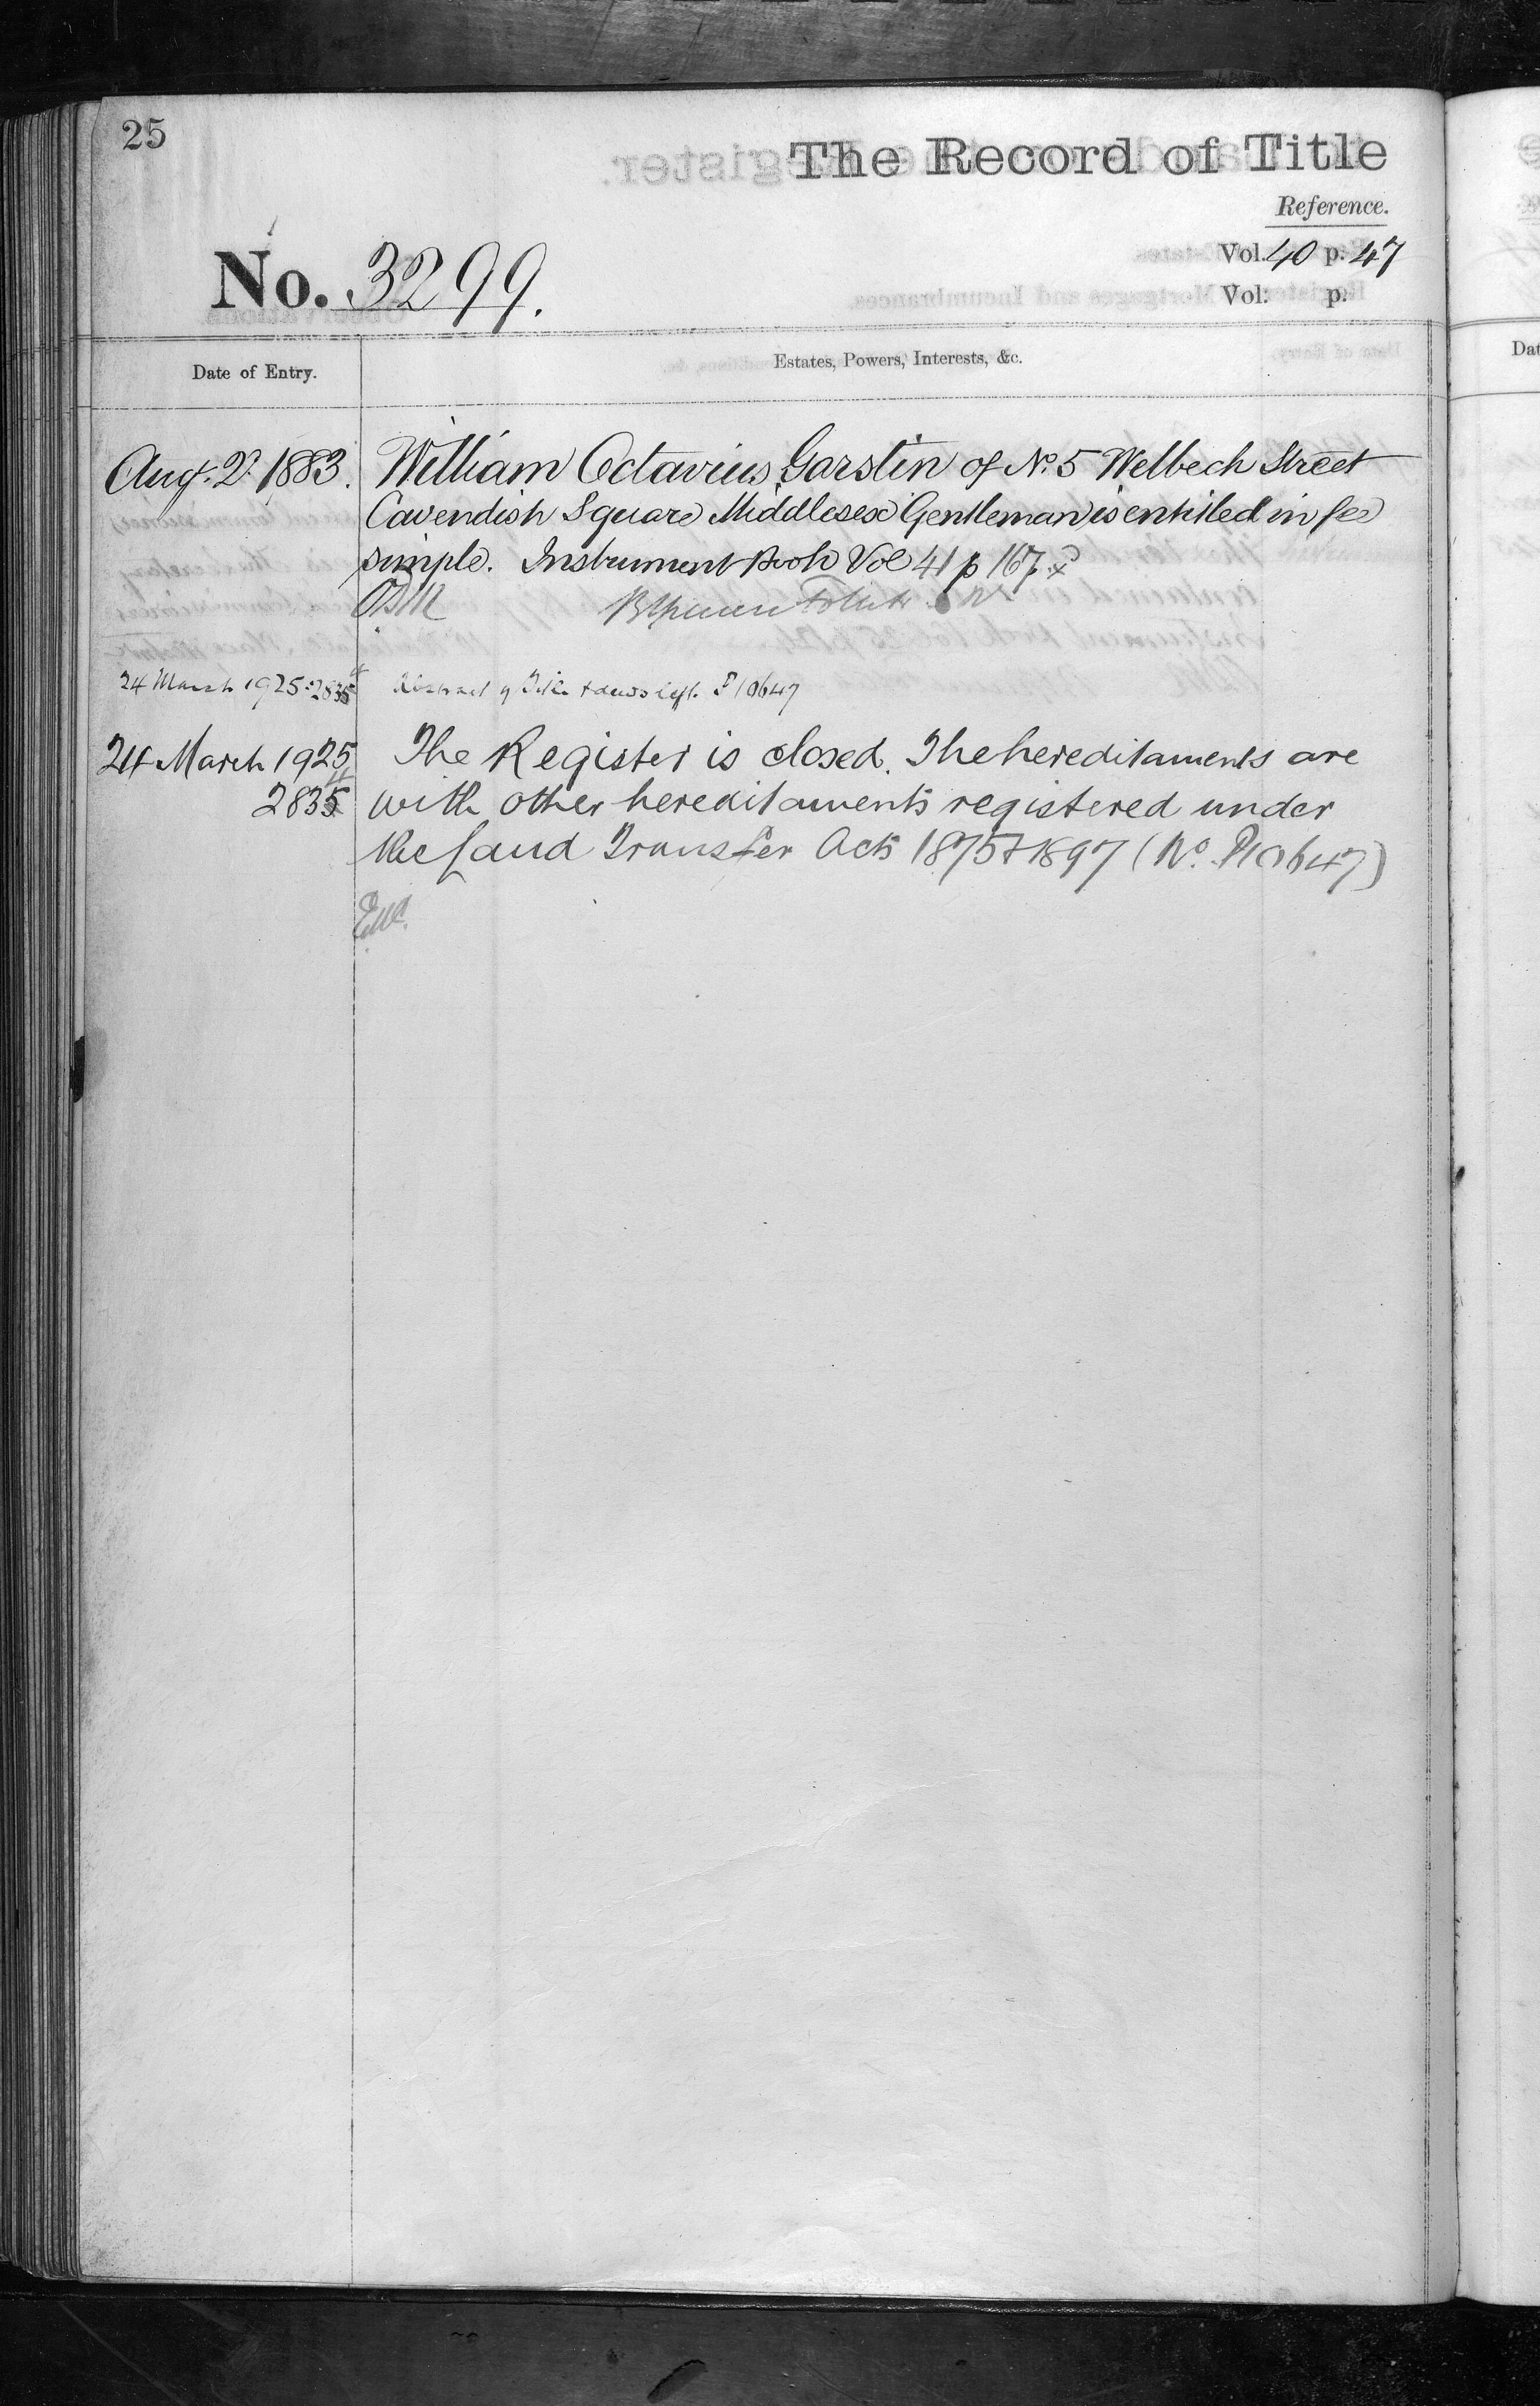 25
The Record of Title
Reference.
Vol. 40 p. 47
Vol: p.
No. 3299.
Date of Entry.
Estates, Powers, Interests, &c.
Aug. 2. 1883. William Octavius Garstin of No. 5 Welbech Street
Cavendish Square Middlesex Gentleman is entitled in fee
simple. Instrument Book Vol 41 p 167.
24 March 1925: 2835 Abstract of Title & deeds left. P 10647
24 March 1925 The Register is closed. The hereditaments are
2835 with other hereditaments registered under
the Land Transfer Acts 1875 & 1897 (No. P10647)